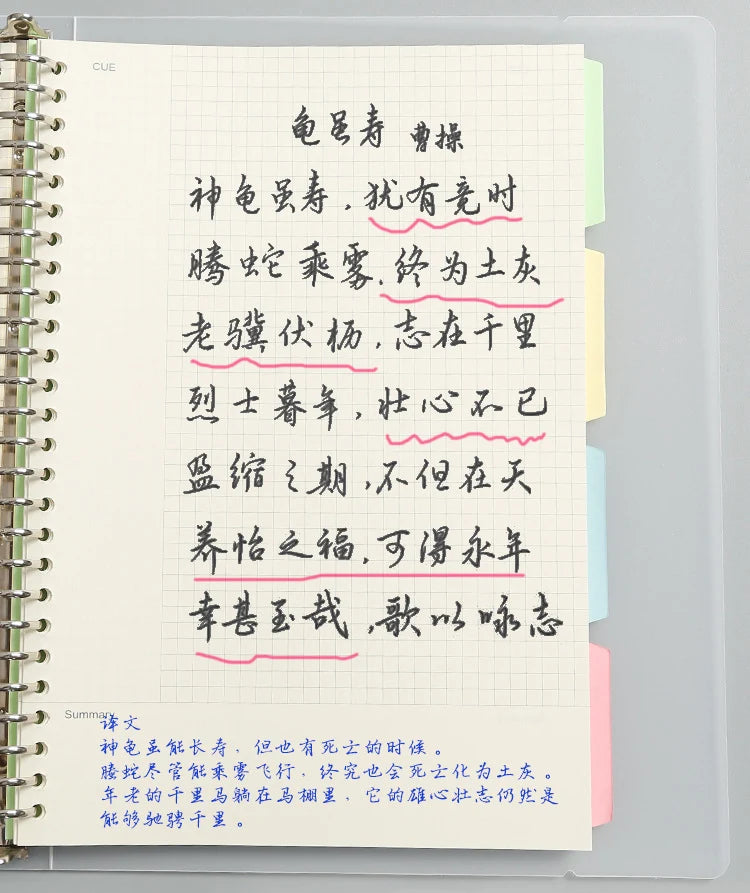 CUE
龟虽寿 曹操
神龟虽寿，犹有竟时
腾蛇乘雾，终为土灰
老骥伏枥，志在千里
烈士暮年，壮心不已
盈缩之期，不但在天
养怡之福，可得永年
幸甚至哉，歌以咏志
Summary
译文
神龟虽能长寿，但也有死亡的时候。
腾蛇尽管能乘雾飞行，终究也会死亡化为土灰。
年老的千里马躺在马棚里，它的雄心壮志仍然是
能够驰骋千里。